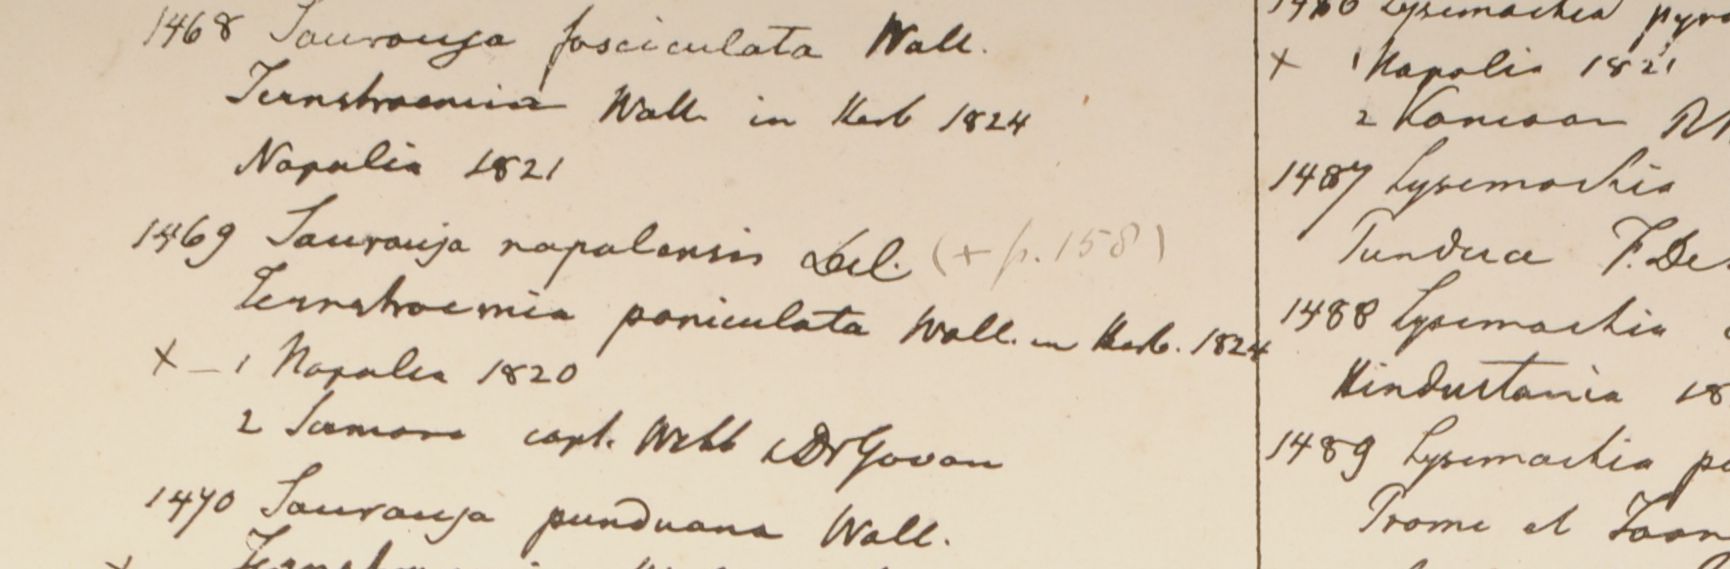 1468 Saurauja fasciculata Wall.
Ternstroemia Wall. in Herb 1824
Napalia 1821
1469 Saurauja napalensis Del. (+ p. 158)
Ternstroemia paniculata Wall. in Herb. 1824
X – 1 Napalia 1820
2 capt. Webb Dr Govan
1470 Saurauja punduana Wall.
1486 Lysimachia pyra
X 1 Napalia 1821
2 Kamaon
1487 Lysimachia
Tundua F. De
1488 Lysimachia
Hindustania 18
1489 Lysimachia
Prome et